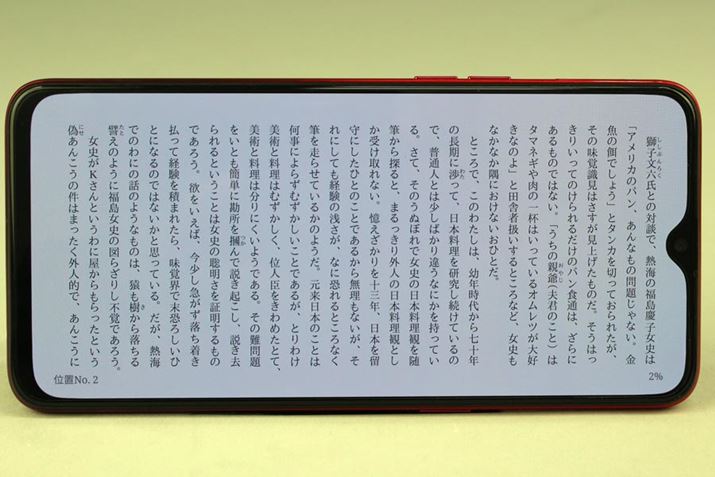 獅子文六氏との対談で、熱海の福島慶子女史は
「アメリカのパン、あんなもの問題じゃない。金
魚の餌でしょう」とタンカを切っておられたが、
その味覚識見はさすが見上げたものだ。そうはっ
きりいってのけられるだけのパン食通は、ざらに
あるものではない。「うちの親爺(夫君のこと)は
タマネギや肉の一杯はいっているオムレツが大好
きなのよ」と田舎者扱いするところなど、女史も
なかなか隅におけないおひとだ。
ところで、このわたしは、幼年時代から七十年
の長期に渉って、日本料理を研究し続けているの
で、普通人とは少しばかり違うなにかを持ってい
る。さて、そのうぬぼれで女史の日本料理観を随
筆から探ると、まるっきり外人の日本料理観とし
か受け取れない。憶えざかりを十三年、日本を留
守にしたひとのことであるから無理もないが、そ
れにしても経験の浅さが、なに恐れるところなく
筆を走らせているかのようだ。元来日本のことは
何事によらずむずかしいことであるが、とりわけ
美術と料理はむずかしく、位人臣をきわめたとて、
美術と料理は分りにくいようである。その難問題
をいとも簡単に勘所を掴んで説き起こし、説き去
られるということは女史の聡明さを証明するもの
であろう。欲をいえば、今少し急がず落ち着き
払って経験を積まれたら、味覚界で末恐ろしいひ
とになるのではないかと思っている。だが、熱海
でのわにの話のようなものは、猿も樹から落ちる
譬えのように福島女史の図らざりし不覚であろう。
女史がKさんというわに屋からもらったという
偽あんこうの件はまったく外人的で、あんこうに
位置No. 2
2%